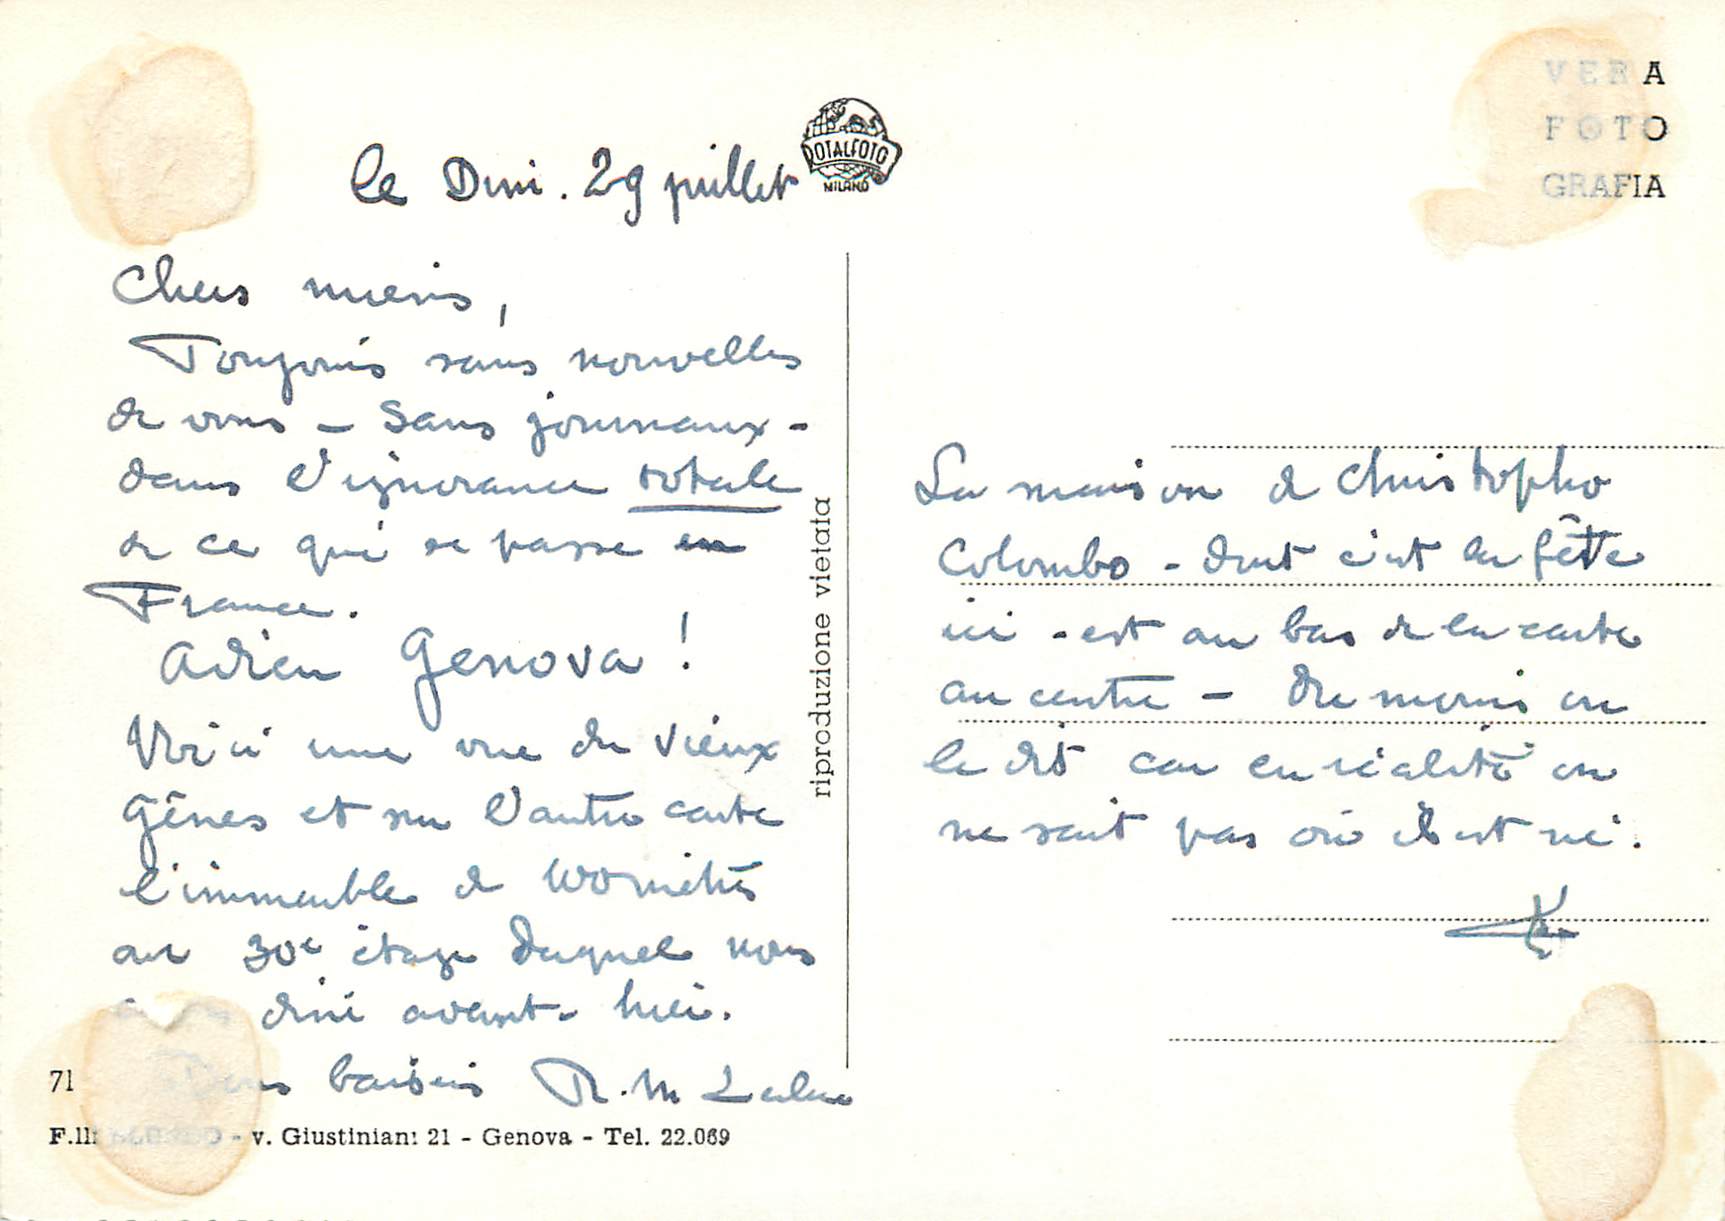 VERA
FOTO
GRAFIA
ROTALFOTO
MILANO
le Dim. 29 juillet
Chers miens,
Toujours sans nouvelles
de vous - Sans journaux -
dans l'ignorance totale
de ce qui se passe en
France.
Adieu Genova !
Voici une vue du vieux
Gênes et sur l'autre carte
l'immeuble de 100 mètres
au 30e étage duquel nous
avons diné avant-hier.
baisers R.M
71
F.lli - v. Giustiniani 21 - Genova - Tel. 22.069
riproduzione vietata
La maison de Christopho
Colombo - dont c'est la fête
ici - est au bas de la carte
au centre - Du moins on
le dit car en réalité on
ne sait pas où il est né.